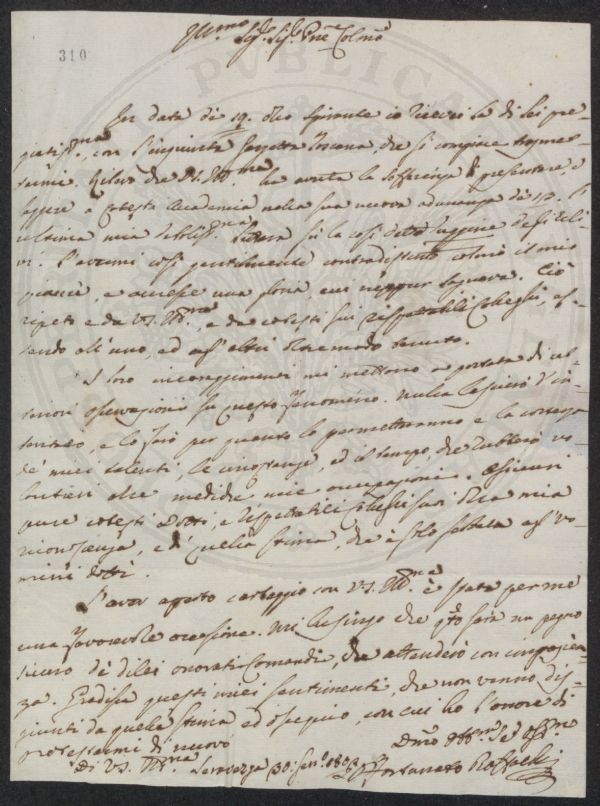 310
Illmo
Sig.r Sig.r Pne Colmo
In data di 19. dello spirante io ricevei la di lei pre-
giatiss.ma, con l'inquinta Gazzetta Toscana, che si compiace trasmet-
termi. Rilevo che V.S. Ill.ma ha avuta la sofferenza di presentare, e
leggere a cotesta Accademia nella sua nuova adunanza de 12.
ultima mia lettera su la così detta ruggine degli Uli-
vi. L'avermi così gentilmente contradistinto colmò il mio
piacere, e accrebbe una gloria, cui neppur sognava. Ciò
ripeto e da V.S. Ill.ma, e da cotesti suoi rispettabili Colleghi, es-
sendo all'uno, ed agl'altri oltremodo tenuto.
I loro incoraggimenti mi mettono a portata di ul-
teriori osservazioni su questo fenomeno. Nulla lascierò d'in-
tentato, e lo farò per quanto lo permetteranno e la cortezza
de' miei talenti, le circostanze, ed il tempo, che rubberò vo-
lentieri alle mediche mie occupazioni. Assicuri
pure cotesti Dotti, e rispettabili Colleghi suoi della mia
riconoscenza, e di quella stima, che è solo dovuta agl'uo-
mini dotti.
L'aver aperto carteggio con V.S. Ill.ma è stata per me
una favorevole occasione. Mi lusingo che q.to sarà un pegno
sicuro de di lei onorati comandi, che attenderò con impazien-
za. Gradisca questi miei sentimenti, che non vanno dis-
giunti da quella stima ed ossequio, con cui ho l'onore di
protestarmi di nuovo
Di V.S. Ill.ma
Seravezza 30. Gen.o
Dmo Obbmo Ser. Affmo
Fortunato Raffaelli